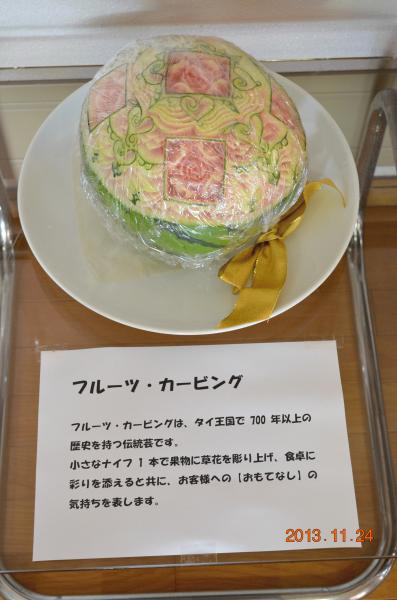 フルーツ・カービング
フルーツ・カービングは、タイ王国で 700 年以上の
歴史を持つ伝統芸です。
小さなナイフ 1 本で果物に草花を彫り上げ、食卓に
彩りを添えると共に、お客様への【おもてなし】の
気持ちを表します。
2013.11.24